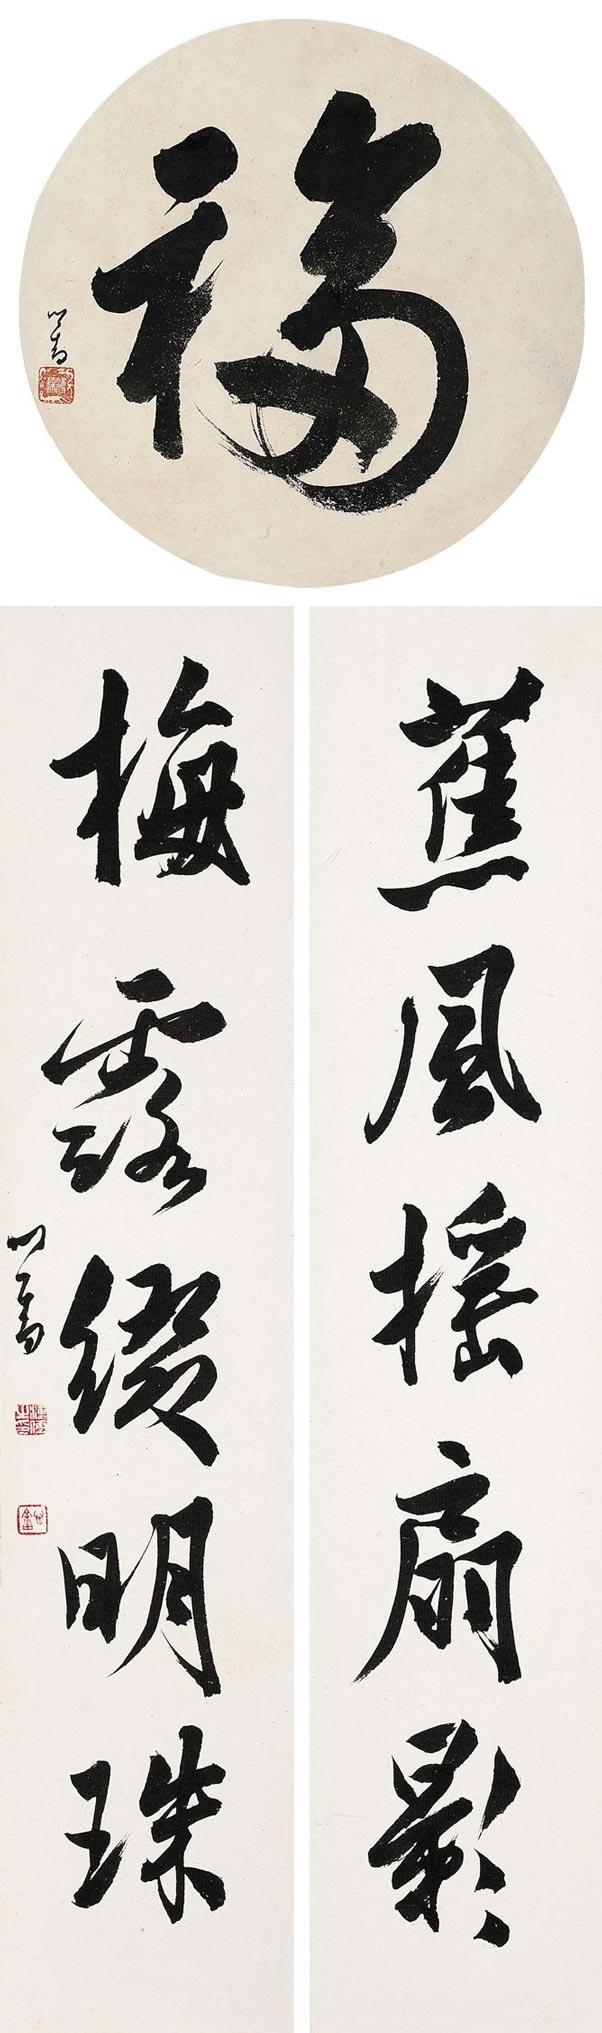 福
心畬
蕉風搖扇影
梅露綴明珠
心畬